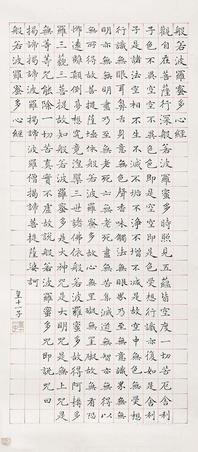 般若波羅蜜多心經
觀自在菩薩行深般若波羅蜜多時照見五蘊皆空度一切苦厄舍利
子色不異空空不異色色即是空空即是色受想行識亦復如是舍利
子是諸法空相不生不滅不垢不淨不增不減是故空中無色無受想
行識無眼耳鼻舌身意無色聲香味觸法無眼界乃至無意識界無無
明亦無無明盡乃至無老死亦無老死盡無苦集滅道無智亦無得以
無所得故菩提薩埵依般若波羅蜜多故心無罣礙無罣礙故無有恐
怖遠離顛倒夢想究竟涅槃三世諸佛依般若波羅蜜多故得阿耨多
羅三藐三菩提故知般若波羅蜜多是大神咒是大明咒是無上咒是
無等等咒能除一切苦真實不虛故說般若波羅蜜多咒即說咒曰
揭諦揭諦波羅揭諦波羅僧揭諦菩提薩婆訶
般若波羅蜜多心經
皇十一子